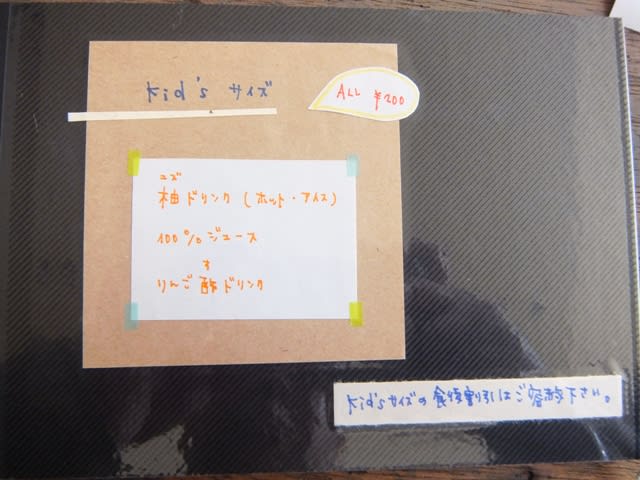 Kid's サイズ
ALL ¥200
ユズ
柚ドリンク (ホット・アイス)
100%ジュース
す
りんご酢ドリンク
Kid'sサイズの食後割引はご容赦下さい。